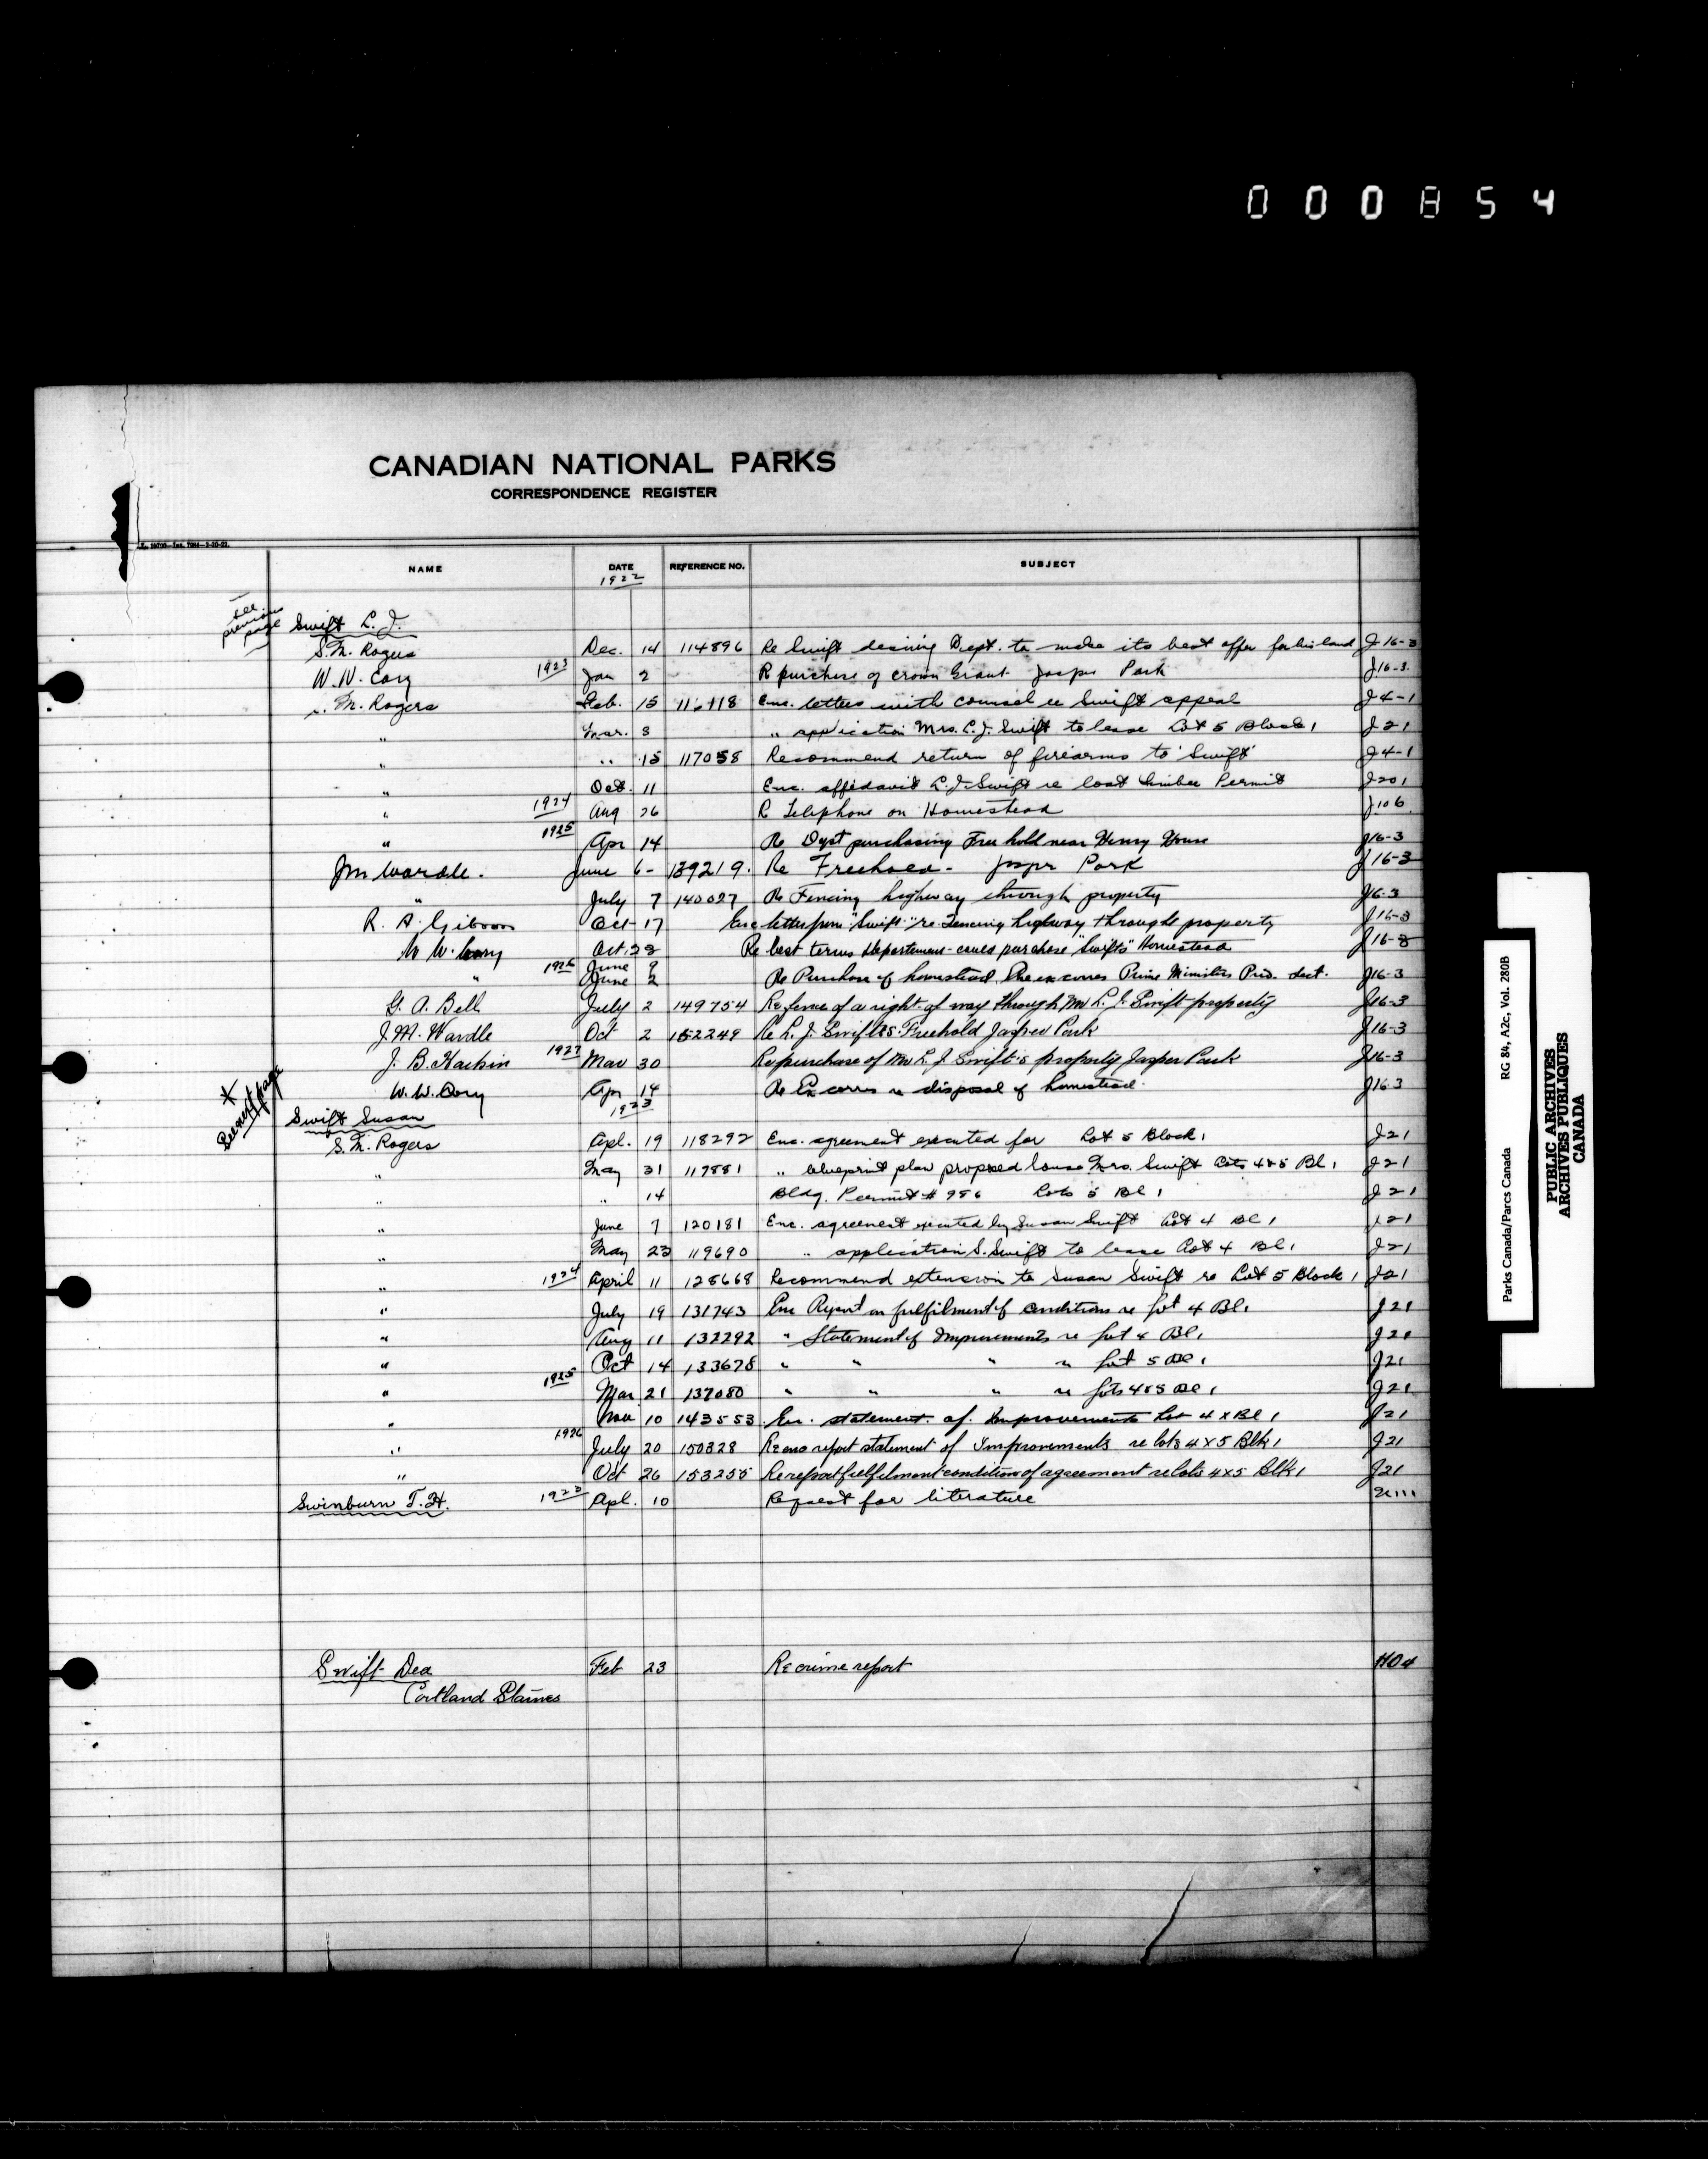 000854
CANADIAN NATIONAL PARKS
CORRESPONDENCE REGISTER
NAME DATE REFERENCE NO. SUBJECT
1922
See previous page
Swift L. J.
S. M. Rogers Dec. 14 114896 Re Swift desiring Dept. to make its best offer for his land J 16-3
W. W. Cory 1923 Jan 2 R purchase of crown Grant Jasper Park J16-3
S. M. Rogers Feb. 15 116118 Enc. letters with counsel re Swift appeal J4-1
" Mar. 3 " application Mrs. L. J. Swift to lease Lot 5 Block 1 J21
" " 15 117058 Recommend return of firearms to 'Swift' J4-1
" Oct. 11 Enc. affidavit L. J. Swift re lost timber Permit J201
" 1924 Aug 26 R Telephone on Homestead J106
" 1925 Apr 14 Re Dept purchasing Free hold near Henry House J16-3
J M Wardle. June 6- 139219. Re Freehold - Jasper Park J16-3
" July 7 140027 Re Fencing highway through property J16-3
R. A. Gibson Oct 17 Enc letter from "Swift" re Fencing highway through property J16-3
W W. Cory Oct. 28 Re best terms Department could purchase "Swifts" Homestead J16-3
1926 June 9
" June 2 Re Purchase of homestead Prime Ministers J16-3
G. A. Bell July 2 149754 Re fence of a right-of way through Mr L. J. Swift property J16-3
J. M. Wardle Oct 2 152249 Re L. J. Swift's Freehold Jasper Park J16-3
J. B. Harkin 1927 Mar 30 Re purchase of Mr L. J. Swift's property Jasper Park J16-3
W. W. Cory Apr 14 Re disposal of homestead. J16-3
* See next page
1923
Swift Susan
S. M. Rogers Apl. 19 118292 Enc. agreement executed for Lot 5 Block 1 J21
" May 31 119881 " blueprint plan proposed house Mrs. Swift Lots 4&5 Bl 1 J21
" " 14 Bldg. Permit # 986 Lots 5 Bl 1 J21
" June 7 120181 Enc. agreement executed by Susan Swift Lot 4 Bl 1 J21
" May 23 119690 " application S. Swift to lease Lot 4 Bl. 1 J21
" 1924 April 11 128668 Recommend extension to Susan Swift re Lot 5 Block 1 J21
" July 19 131743 Enc Report on fulfilment of conditions re Lot 4 Bl 1 J21
" Aug 11 132292 " Statement of Improvements re Lot 4 Bl 1 J21
" Oct 14 133678 " " " re Lot 5 Bl 1 J21
" 1925 Mar 21 137080 " " " re Lots 4&5 Bl 1 J21
" Nov 10 143553 Enc. statement of Improvements Lot 4 x Bl 1 J21
" 1926 July 20 150328 Re enc report statement of Improvements re lots 4 x 5 Blk 1 J21
" Oct 26 153255 Re report fulfilment condition of agreement re lots 4 x 5 Blk 1 J21
Swinburn T. H. 1922 Apl. 10 Request for literature
Swift Dea Feb 23 Re crime report
Cortland
Parks Canada/Parcs Canada RG 84, A2c, Vol. 280B
PUBLIC ARCHIVES
ARCHIVES PUBLIQUES
CANADA